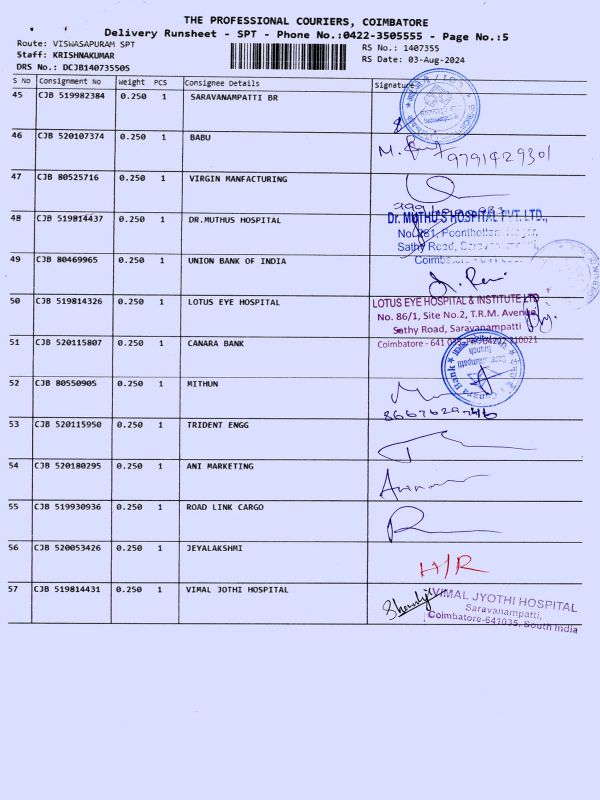 THE PROFESSIONAL COURIERS, COIMBATORE
Delivery Runsheet - SPT - Phone No.:0422-3505555 - Page No.:5
Route: VISWASAPURAM SPT
RS No.: 1407355
Staff: KRISHNAKUMAR
RS Date: 03-Aug-2024
DRS No.: DCJB140735505
S No Consignment No Weight PCS Consignee Details Signature
45 CJB 519982384 0.250 1 SARAVANAMPATTI BR
46 CJB 520107374 0.250 1 BABU
9791429301
47 CJB 80525716 0.250 1 VIRGIN MANFACTURING
48 CJB 519814437 0.250 1 DR.MUTHUS HOSPITAL
Dr. MUTHU'S HOSPITAL PVT. LTD.,
Sathy Road,
49 CJB 80469965 0.250 1 UNION BANK OF INDIA
50 CJB 519814326 0.250 1 LOTUS EYE HOSPITAL
LOTUS EYE HOSPITAL & INSTITUTE LTD
No. 86/1, Site No.2, T.R.M. Avenue
Sathy Road, Saravanampatti
Coimbatore - 641
51 CJB 520115807 0.250 1 CANARA BANK
Canara Bank
52 CJB 80550905 0.250 1 MITHUN
53 CJB 520115950 0.250 1 TRIDENT ENGG
54 CJB 520180295 0.250 1 ANI MARKETING
55 CJB 519930936 0.250 1 ROAD LINK CARGO
56 CJB 520053426 0.250 1 JEYALAKSHMI
H/R
57 CJB 519814431 0.250 1 VIMAL JOTHI HOSPITAL
VIMAL JYOTHI HOSPITAL
Saravanampatti,
Coimbatore-641035, South India